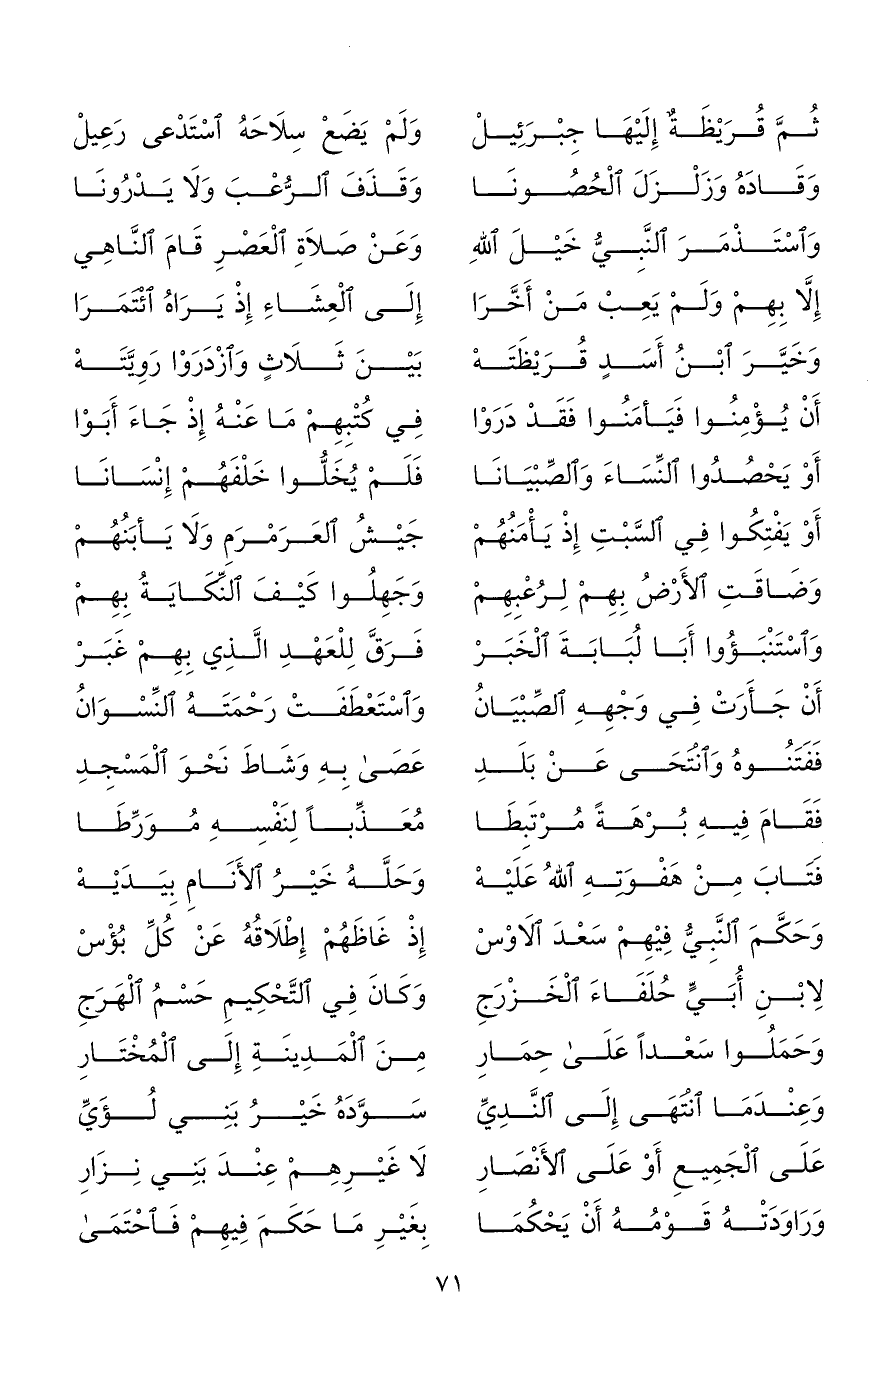 ثُمَّ قُرَيْظَةٌ إِلَيْهَا جِبْرَئِيلْ وَلَمْ يَضَعْ سِلَاحَهُ ٱسْتَدْعى رَعِيلْ
وَقَادَهُ وَزَلْزَلَ ٱلْحُصُونَا وَقَذَفَ ٱلرُّعْبَ وَلَا يَدْرُونَا
وَٱسْتَذْمَرَ ٱلنَّبِيُّ خَيْلَ ٱللهِ وَعَنْ صَلَاةِ ٱلْعَصْرِ قَامَ ٱلنَّاهِي
إِلَّا بِهِمْ وَلَمْ يَعِبْ مَنْ أَخَّرَا إِلَى ٱلْعِشَاءِ إِذْ يَرَاهُ ٱئْتَمَرَا
وَخَيَّرَ ٱبْنُ أَسَدٍ قُرَيْظَتَهْ بَيْنَ ثَلَاثٍ وَٱزْدَرَوْا رَوِيَّتَهْ
أَنْ يُؤْمِنُوا فَيَأْمَنُوا فَقَدْ دَرَوْا فِي كُتْبِهِمْ مَا عَنْهُ إِذْ جَاءَ أَبَوْا
أَوْ يَحْصُدُوا ٱلنِّسَاءَ وَٱلصِّبْيَانَا فَلَمْ يُخَلُّوا خَلْفَهُمْ إِنْسَانَا
أَوْ يَفْتِكُوا فِي ٱلسَّبْتِ إِذْ يَأْمَنُهُمْ جَيْشُ ٱلعَرَمْرَمِ وَلَا يَأْبَنُهُمْ
وَضَاقَتِ ٱلْأَرْضُ بِهِمْ لِرُعْبِهِمْ وَجَهِلُوا كَيْفَ ٱلنِّكَايَةُ بِهِمْ
وَٱسْتَنْبَؤُوا أَبَا لُبَابَةَ ٱلْخَبَرْ فَرَقَّ لِلْعَهْدِ الَّذِي بِهِمْ غَبَرْ
أَنْ جَأَرَتْ فِي وَجْهِهِ ٱلصِّبْيَانُ وَٱسْتَعْطَفَتْ رَحْمَتَهُ ٱلنِّسْوَانُ
فَفَتَنُوهُ وَٱنْتَحَى عَنْ بَلَدِ عَصَىٰ بِهِ وَشَاطَ نَحْوَ ٱلْمَسْجِدِ
فَقَامَ فِيهِ بُرْهَةً مُرْتَبِطَا مُعَذِّباً لِنَفْسِهِ مُوَرِّطَا
فَتَابَ مِنْ هَفْوَتِهِ ٱللهُ عَلَيْهْ وَحَلَّهُ خَيْرُ ٱلْأَنَامِ بِيَدَيْهْ
وَحَكَّمَ ٱلنَّبِيُّ فِيْهِمْ سَعْدَ ٱلَاوْسْ إِذْ غَاظَهُمْ إِطْلَاقُهُ عَنْ كُلِّ بُؤْسْ
لِابْنِ أُبَيٍّ حُلَفَاءَ ٱلْخَزْرَجِ وَكَانَ فِي ٱلتَّحْكِيمِ حَسْمُ ٱلْهَرَجِ
وَحَمَلُوا سَعْداً عَلَىٰ حِمَارِ مِنَ ٱلْمَدِينَةِ إِلَى ٱلْمُخْتَارِ
وَعِنْدَمَا ٱنْتَهَى إِلَى ٱلنَّدِيِّ سَوَّدَهُ خَيْرُ بَنِي لُؤَيِّ
عَلَى ٱلْجَمِيعِ أَوْ عَلَى ٱلْأَنْصَارِ لَا غَيْرِهِمْ عِنْدَ بَنِي نِزَارِ
وَرَاوَدَتْهُ قَوْمُهُ أَنْ يَحْكُمَا بِغَيْرِ مَا حَكَمَ فِيهِمْ فَٱحْتَمَىٰ
٧١